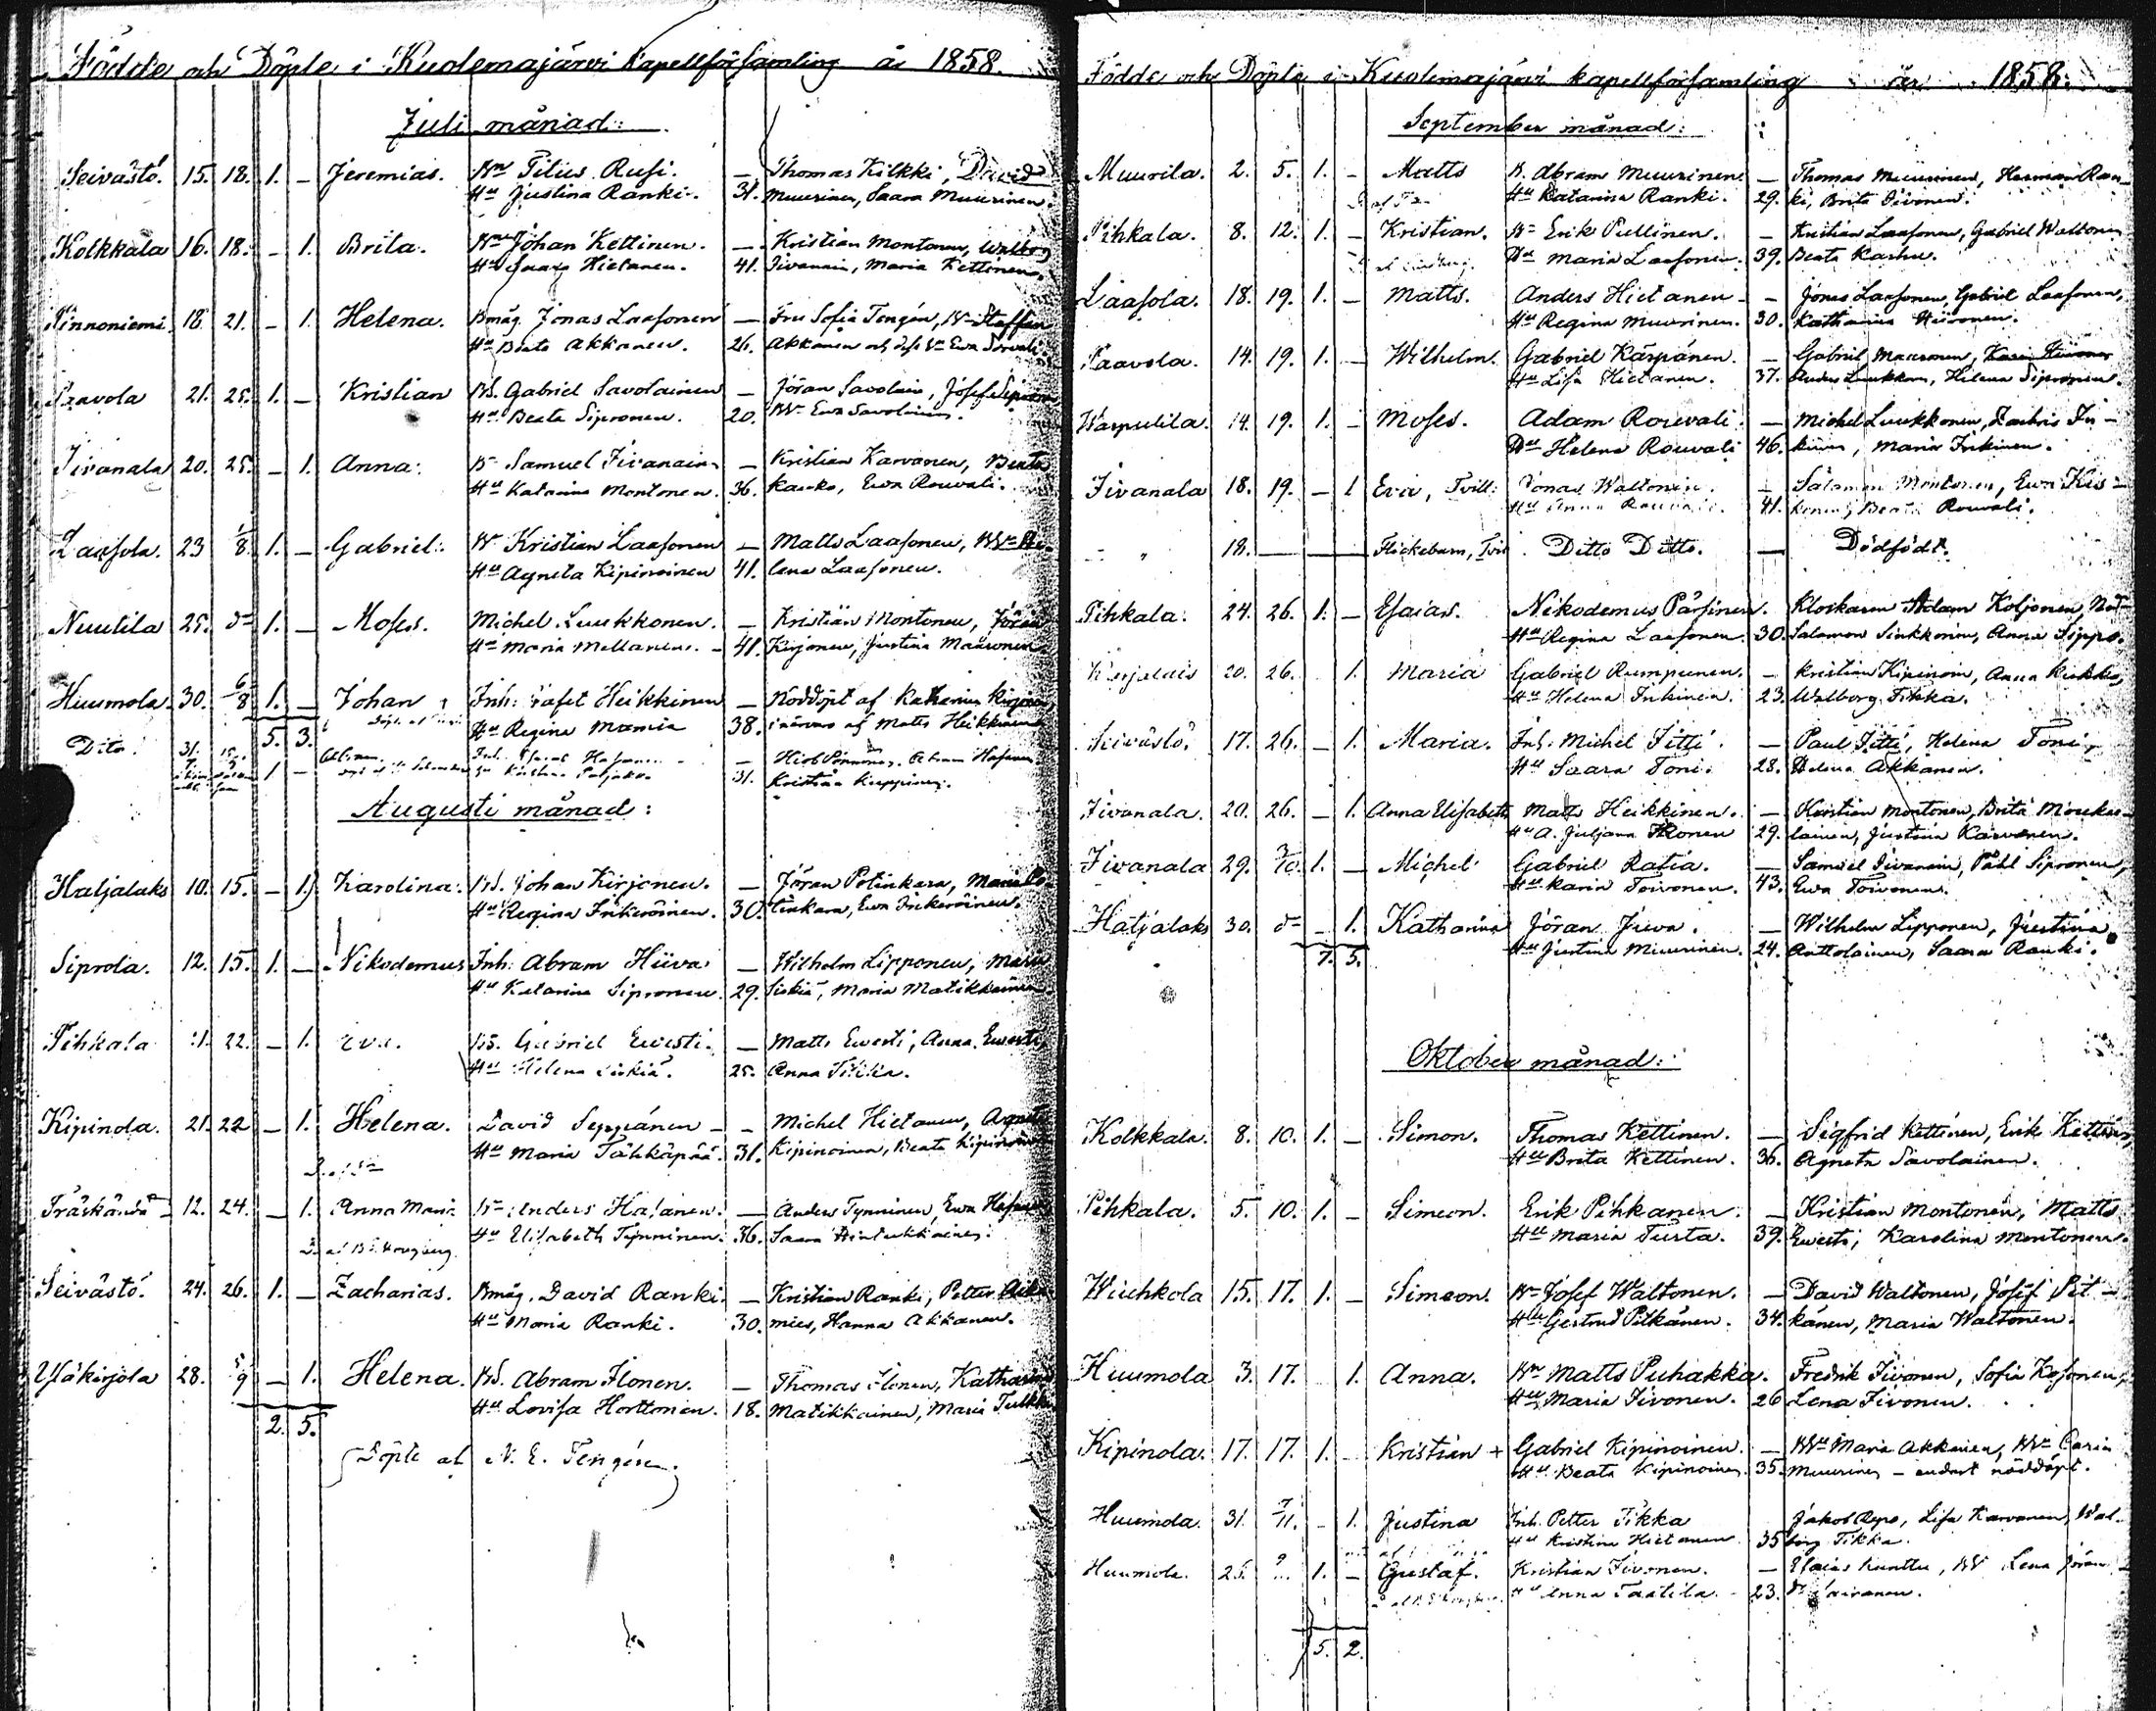 Födde och Döpte i Kuolemajärvi Kapellförsamling år 1858.
Juli månad:
Seivästö. 15. 18. 1. – Jeremias. Bn Filius Rusi. – Thomas Kilkki, David
Hu Justina Ranki. 31. Muurinen, Saara Muurinen.
Kolkkala 16. 18. – 1. Brita. Bn Johan Kettinen. – Kristian Montonen, Walborg
Hu Saara Hietanen. 41. Iivanain, Maria Kettinen.
Pinnoniemi 18. 21. – 1. Helena. Bmåg. Jonas Laasonen – Fru Sofia Tengén, Bn Staffan
Hu Beata Akkanen. 26. Akkanen och dess Ewa
Paavola 21. 25. 1. – Kristian Bd. Gabriel Savolainen – Jöran Savolain, Josef
Hu Beata Sipronen. 20. Ewa Savolainen.
Iivanala 20. 25. – 1. Anna. B Samuel Iivanain – Kristian Karvanen, Beata
Hu Katarina Montonen. 36. Ewa Rouvali.
Laasola. 23 1/8. 1. – Gabriel. B Kristian Laasonen – Matts Laasonen, He-
Hu Agneta Kipinoinen 41. lena Laasonen.
Nuutila 25. do 1. – Moses. Michel Luukkonen. – Kristian Montonen, Jöran
Hu Maria Mellanen. – 41. Kirjonen, Justina Määronen.
Huumola. 30. 6/8 1. – Johan Inh: Heikkinen – Nöddöpt af Katharina
Hu Regina Mamia 38. i närvaro af Matts Heikkinen
5. 3.
Dito. 31. 1 –
31. Kristina
Augusti månad:
Hatjalaks 10. 15. – 1. Karolina. Bd. Johan Kirjonen. – Jöran Potinkara, Maria Po-
Hu Regina Inkeröinen. 30. tinkara, Ewa Inkeröinen.
Siprola. 12. 15. 1. – Nikodemus Inh: Abram Hiiva – Wilhelm Lipponen, Maria
Hu Katarina Sipronen. 29. Siskiä, Maria Matikkainen.
Pihkala 22. – 1. Eva. Bd. Gabriel Ewesti. – Matts Ewesti, Anna Ewesti,
Hu Helena Siskiä. 25. Anna
Kipinola. 21. 22 – 1. Helena. David Seppänen – – Michel Hietanen, Agneta
Hu Maria Tähkäpää. 31. Kipinoinen, Beata Kipinoinen
Träskända 12. 24. – 1. Anna Maria Bn Anders – Anders Tynninen, Ewa
Hu Elisabeth Tynninen. 36. Saara
Seivästö. 24. 26. 1. – Zacharias. Bmåg. David Ranki. – Kristian Ranki, Petter
Hu Maria Ranki. 30. mies, Hanna Akkanen.
Yläkirjola 28. 5/9 – 1. Helena. Bd. Abram Ilonen. – Thomas Ilonen, Katharina
Hu Lovisa Horttonen. 18. Matikkainen, Maria
2. 5.
Döpte af N. E. Tengén.
Födde och Döpte i Kuolemajärvi kapellförsamling år 1858.
September månad:
Muurila. 2. 5. 1. – Matts B. Abram Muurinen. – Thomas Muurinen, Herman Ran-
Hu Katarina Ranki. 29. ki, Brita Iivonen.
Pihkala. 8. 12. 1. – Kristian. Bn Erik Pullinen. – Kristian Laasonen, Gabriel Waltonen
Hu Maria Laasonen. 39. Beata Karhu.
Laasola. 18. 19. 1. – Matts. Anders Hietanen – – Jonas Laasonen, Gabriel Laasonen,
Hu Regina Muurinen. 30. Katharina
Paavola. 14. 19. 1. – Wilhelm. Gabriel Kärpänen. – Gabriel Maaronen,
Hu Lisa Hietanen. 37. Anders Luukkonen, Helena Sipronen.
Warpulila. 14. 19. 1. – Moses. Adam Rouvali. – Michel Luukkonen, In-
Hu Helena Rouvali 46. kinen, Maria Inkinen.
Iivanala 18. 19. – 1 Eva, Tvill: Jonas Waltonen. – Salamon Montonen, Ewa Kos-
Hu Anna Rouvali. 41. konen, Beata Rouvali.
– " 18. – – Flickebarn, Tvil. Ditto Ditto. – Dödfödt.
Pihkala. 24. 26. 1. – Esaias. Nikodemus Pärsinen. Klockaren Adam Koljonen,
Hu Regina Laasonen. 30. Salamon Sinkkonen, Anna Sippo.
20. 26. 1. Maria Gabriel Rumpunen. – Kristian Kipinoin, Anna
Hu Helena Inkinen. 23. Walborg Tikka.
Seivästö. 17. 26. – 1. Maria. Inh: Michel Titti. – Paul Titti, Helena Toni,
Hu Saara Toni. 28. Helena Akkanen.
Iivanala. 20. 26. – 1. Anna Elisabeth Matts Heikkinen. – Kristian Montonen, Brita Moukas-
Hu A. Juljana Ikonen 29. lainen, Justina Karvanen.
Iivanala 29. 3/10. 1. – Michel Gabriel Ratia. – Samuel Iivanain, Påhl Sipronen,
Hu Karin Toivonen. 43. Ewa Toivonen.
Hatjalaks 30. do – 1. Katharina Jöran – Wilhelm Lipponen, Justina
Hu Justina Muurinen. 24. Anttolainen, Saara Ranki.
7. 5.
Oktober månad:
Kolkkala. 8. 10. 1. – Simon. Thomas Kettinen. – Sigfrid Kettinen, Erik Kettinen,
Hu Brita Kettinen. 36. Agneta Savolainen.
Pihkala. 5. 10. 1. – Simeon. Erik Pihkanen. – Kristian Montonen, Matts
Hu Maria Tusta. 39. Ewesti, Karolina Montonen.
Wiuhkola 15. 17. 1. – Simeon. Bn Josef Waltonen. – David Waltonen, Josef Pit-
Hu Gertrud Pitkänen. 34. känen, Maria Waltonen.
Huumola 3. 17. 1. Anna. Bn Matts Puhakka. Fredrik Iivonen, Sofia Kosonen,
Hu Maria Iivonen. 26 Lena Iivonen.
Kipinola. 17. 17. 1. – Kristian + Gabriel Kipinoinen. – Maria Akkanen, Carin
Hu Beata Kipinoinen. 35. Muurinen – endast nöddöpt.
Huumola. 31. 7/11. – 1. Justina Inh. Petter Tikka Jakob Lisa Karvanen, Wal-
Hu Kristina Hietanen 35 borg Tikka.
Huumola. 25. 1. – Gustaf. Kristian Iivonen. – Esaias Lena
Hu Anna Taatila. 23.
5. 2.